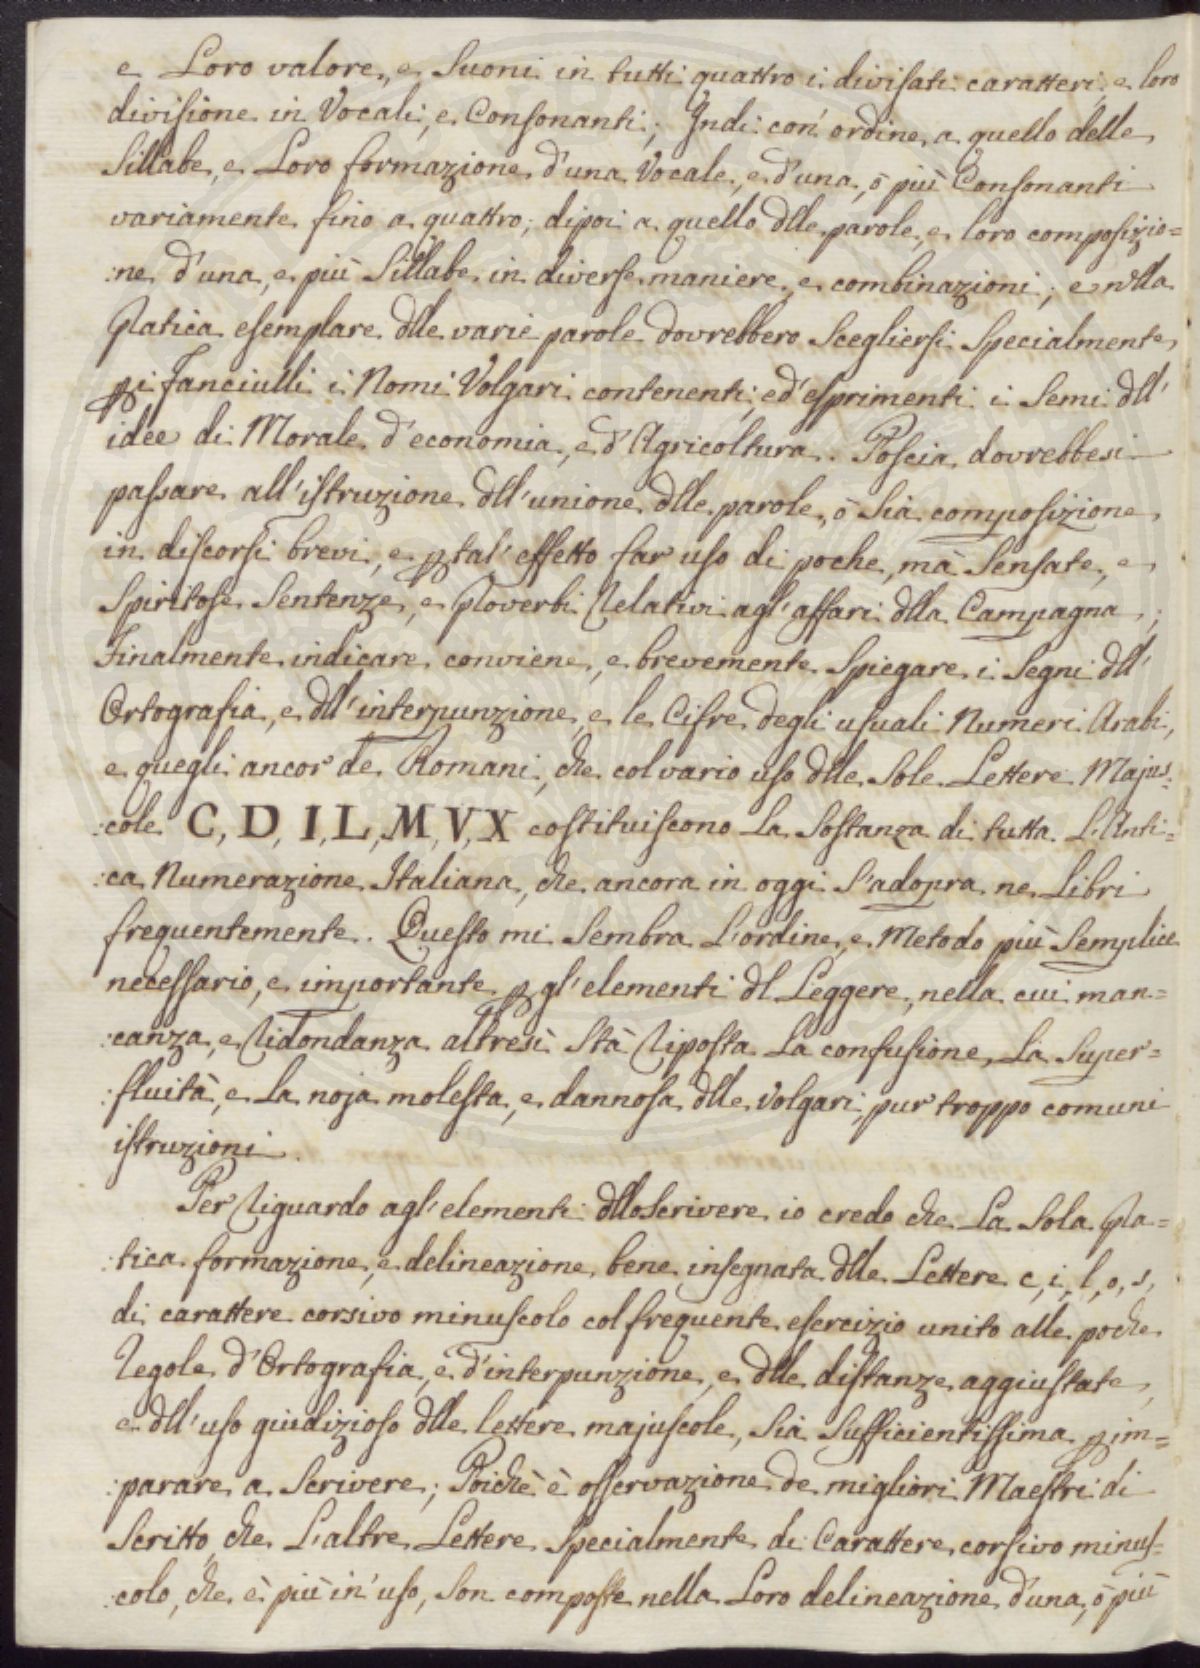 e Loro valore, e Suoni in tutti quattro i divisati caratteri, e loro
divisione in Vocali, e Consonanti; Indi con' ordine a quello delle
Sillabe, e Loro formazione d'una Vocale, e d'una, ò più Consonanti
variamente fino a quattro; dipoi a quello dlle parole, e loro composizio=
:ne d'una, e più Sillabe in diverse maniere, e combinazioni; e nlla
Pratica esemplare dlle varie parole dovrebbero Scegliersi Specialmente
p i Fanciulli i Nomi Volgari contenenti, ed' esprimenti i Semi dll'
idee di Morale d'economia, e d'Agricoltura. Poscia dovrebbesi
passare all'istruzione dll'unione dlle parole, ò Sia composizione
in discorsi brevi, e p tal' effetto far uso di poche, mà Sensate, e
Spiritose Sentenze, e Proverbi Relativi agl'affari dlla Campagna;
Finalmente indicare conviene, e brevemente Spiegare i Segni dll'
Ortografia, e dll'interpunzione, e le Cifre degli usuali Numeri Arabi,
e quegli ancor de Romani, che col vario uso dlle Sole Lettere Majus=
:cole C, D, I, L, M, V, X costituiscono La Sostanza di tutta L'Anti=
:ca Numerazione Italiana, che ancora in oggi S'adopra ne Libri
frequentemente. Questo mi Sembra L'ordine, e Metodo più Semplice
necessario, e importante p gl'elementi dl Leggere, nella cui man=
:canza, e Ridondanza altresì Stà Riposta La confusione, La Super=
:fluità, e La noja molesta, e dannosa dlle Volgari, pur troppo comuni
istruzioni.
Per Riguardo agl'elementi dllo Scrivere io credo che La Sola Pra=
:tica formazione, e delineazione bene insegnata dlle Lettere c, i, l, o, s,
di carattere corsivo minuscolo col frequente esercizio unito alle poche
Regole d'Ortografia, e d'interpunzione, e dlle distanze aggiustate,
e dll'uso giudizioso dlle lettere majuscole, Sia Sufficientissima p im=
:parare a Scrivere; Poichè è osservazione de migliori Maestri di
Scritto, che L'altre Lettere Specialmente di Carattere corsivo minus=
:colo, che è più in' uso, Son composte nella Loro delineazione d'una, ò più